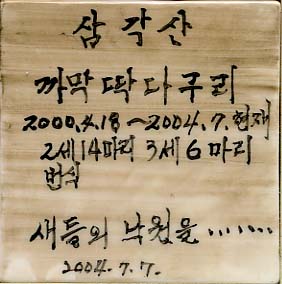 삼각산
까막딱다구리
2000.4.18～2004.7.현재
2세14마리 3세6마리
번식
새들의 낙원을.......
2004.7.7.